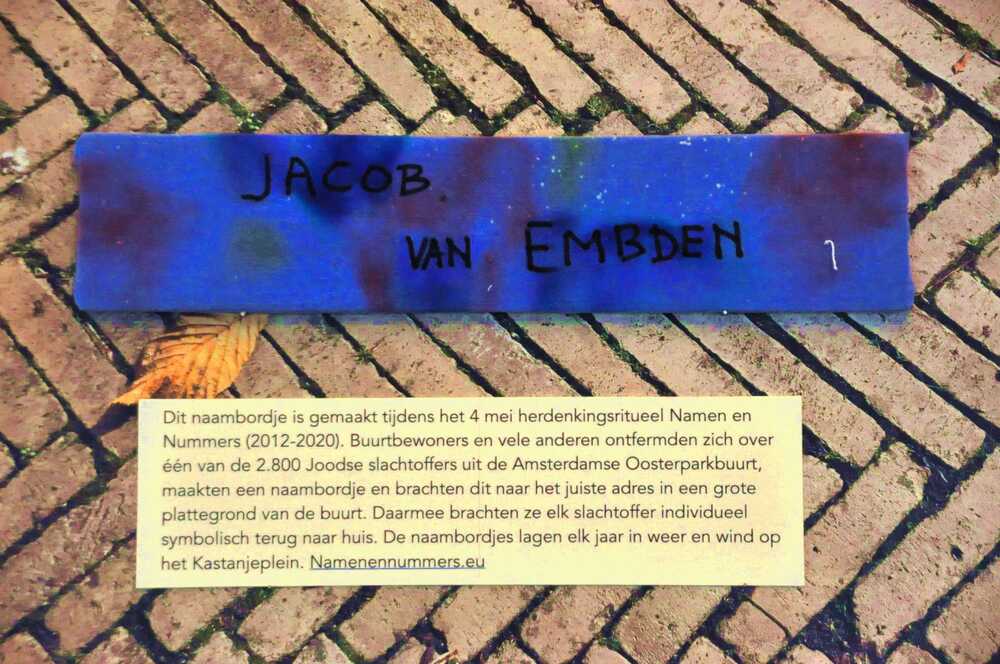 JACOB.
VAN EMBDEN
Dit naambordje is gemaakt tijdens het 4 mei herdenkingsritueel Namen en
Nummers (2012-2020). Buurtbewoners en vele anderen ontfermden zich over
één van de 2.800 Joodse slachtoffers uit de Amsterdamse Oosterparkbuurt,
maakten een naambordje en brachten dit naar het juiste adres in een grote
plattegrond van de buurt. Daarmee brachten ze elk slachtoffer individueel
symbolisch terug naar huis. De naambordjes lagen elk jaar in weer en wind op
het Kastanjeplein. Namenennummers.eu